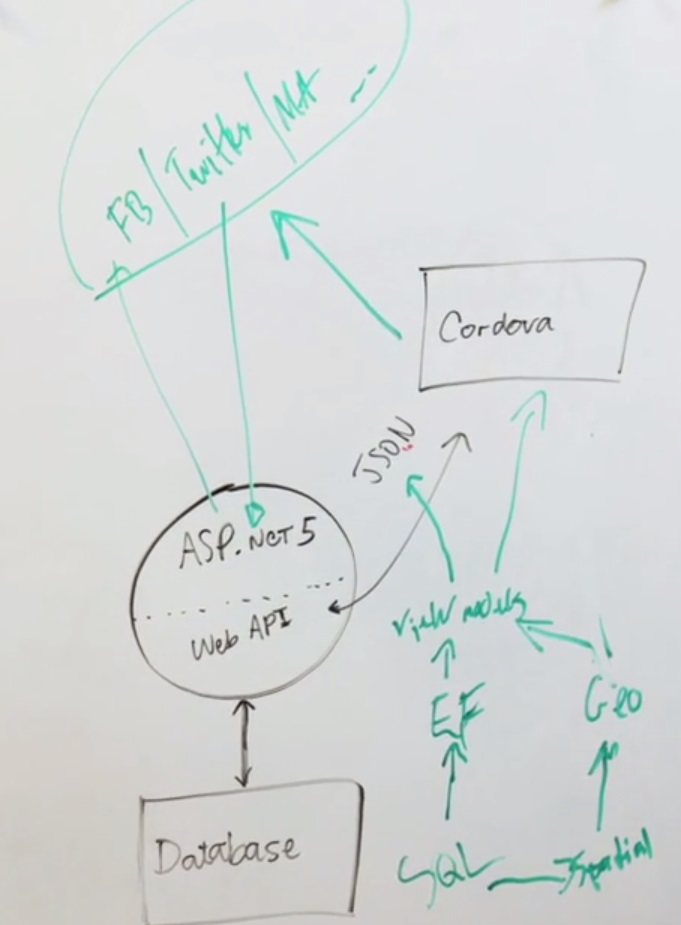 FB / Twitter / MA ...
Cordova
JSON
ASP.NET 5
Web API
view models
EF
Geo
Database
SQL
Spatial